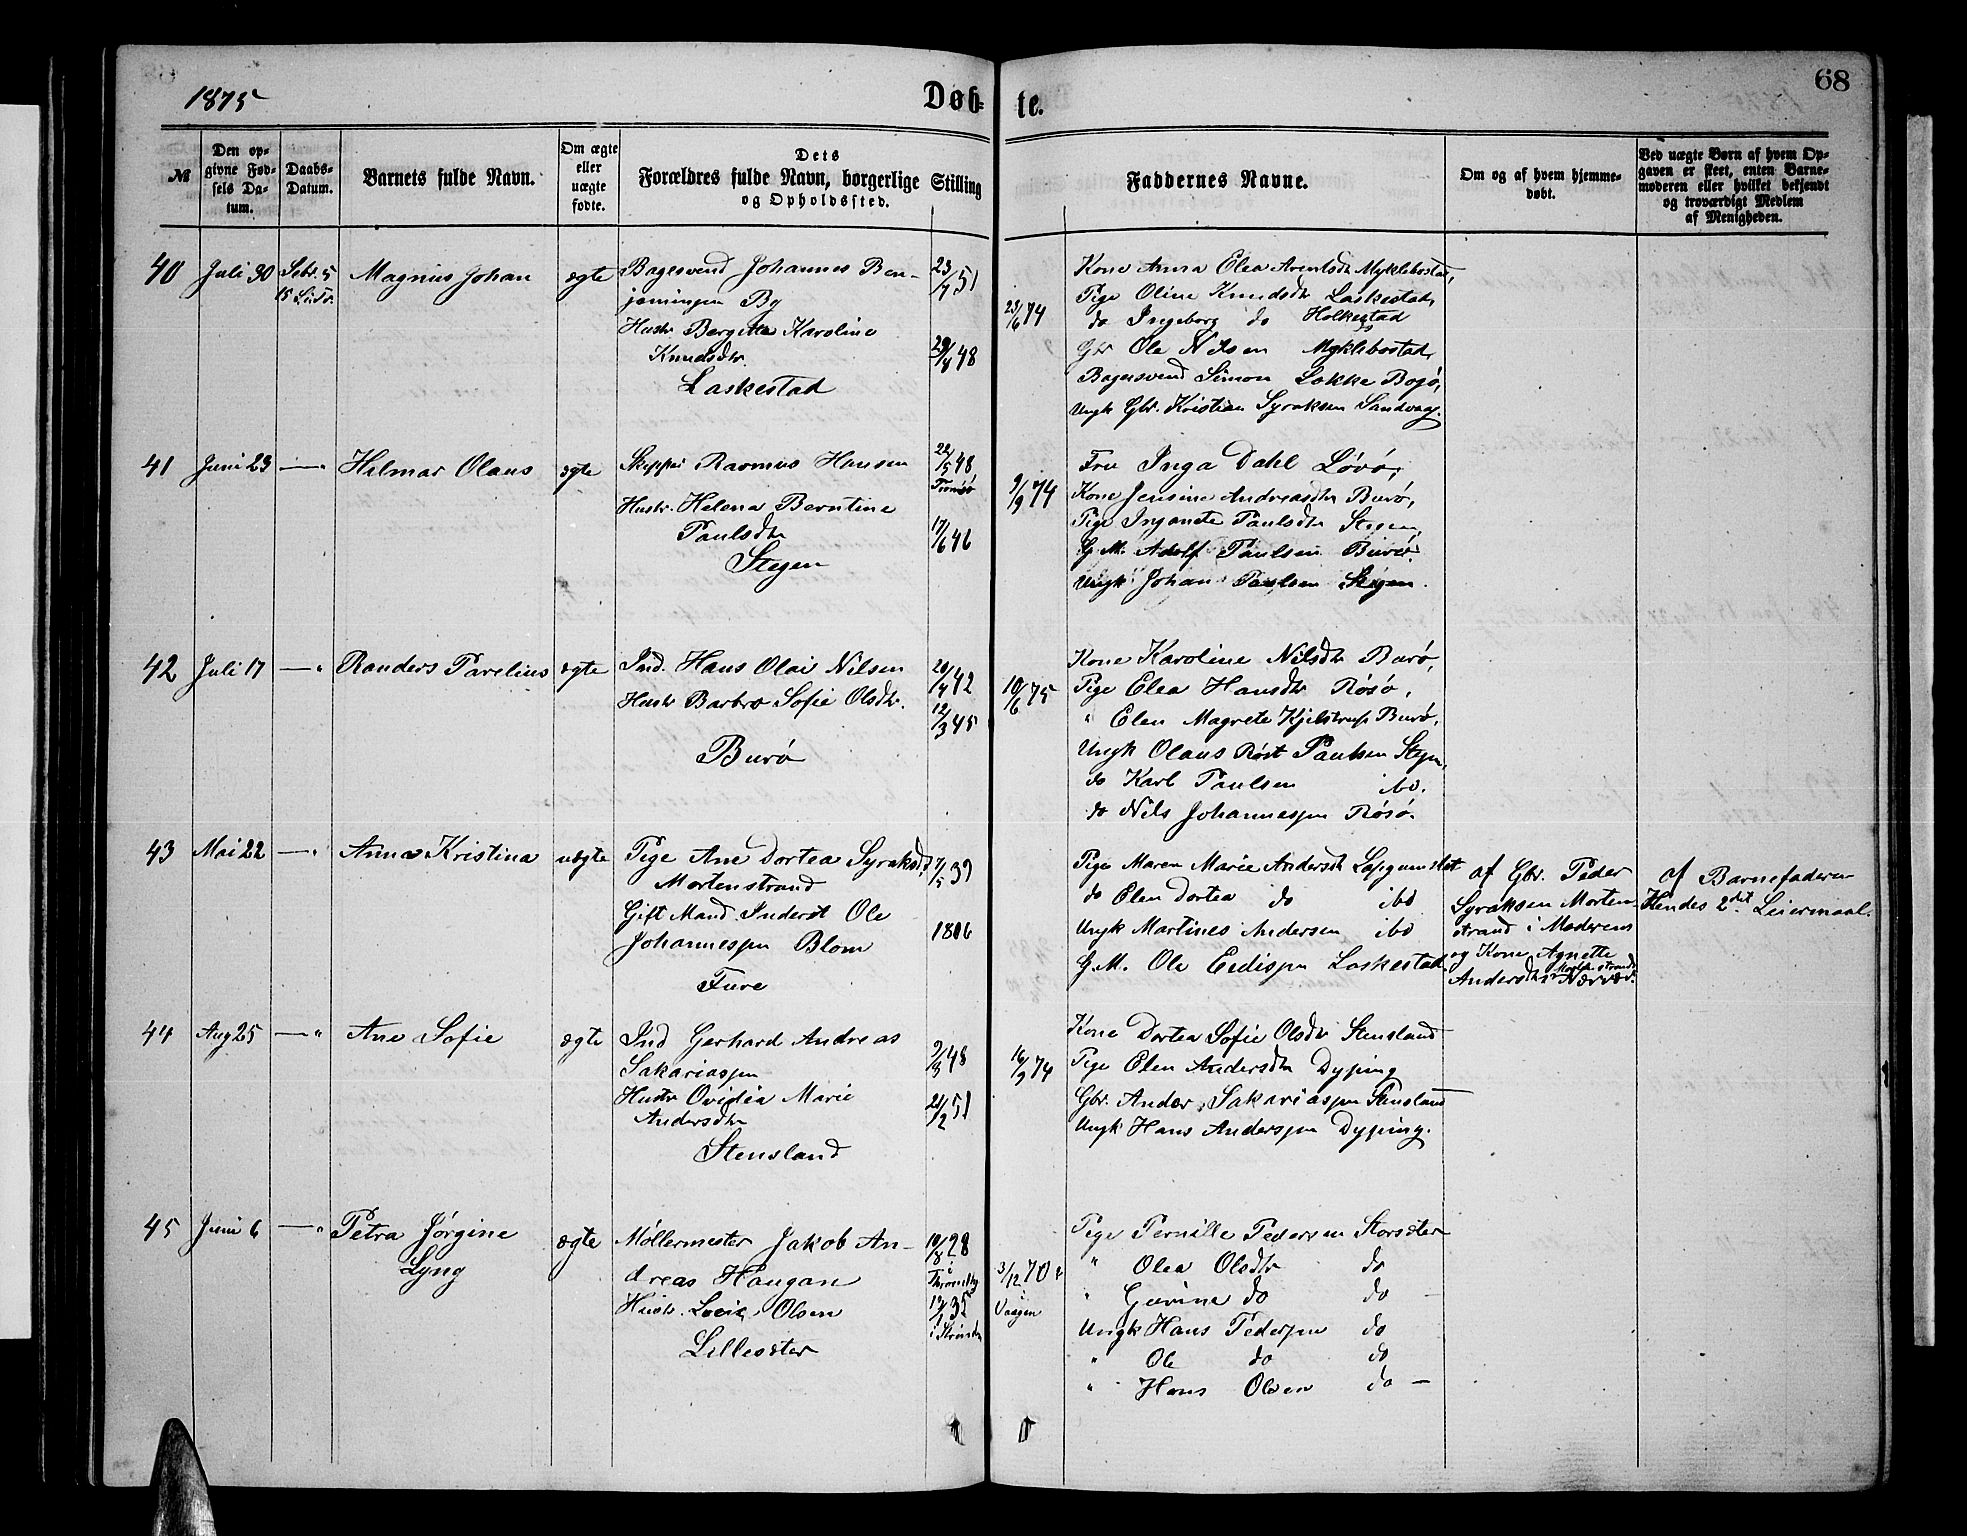 1875
Døb-
te.
68
№
Den op-
givne Fød-
sels Da-
tum.
Daabs-
Datum.
Barnets fulde Navn.
Om ægte
eller
uægte
fødte.
Dets
Forældres fulde Navn, borgerlige Stilling
og Opholdssted.
Faddernes Navne.
Om og af hvem hjemme-
døbt.
Ved uægte Børn af hvem Op-
gaven er skeet, enten Barne-
moderen eller hvilket bekjendt
og troværdigt Medlem
af Menigheden.
40 Juli 30 Sebr. 5 Magnus Johan ægte
Bagesvend Johannes Ben-
jaminsen By
Hustr Bergitte Karoline
Knudsdtr
Laskestad
23/7 51
29/8 48
23/6 74
Kone Anna Elea Arentsdtr Myklebostad,
Pige Oline Knudsdtr Laskestad,
do Ingeborg do Holkestad
Gbr Ole Nilsen Myklebostad,
Bagersvend Simon Løkke Bogø,
Ungk Gbr. Kristian Syraksen Sandvaag.
41 Juni 23 — " Hilmar Olaus ægte
Skipper Rasmus Hansen
Hustr. Helena Berntine
Paulsdtr
Stegen
22/5 48
Tromsø
17/6 46
9/9 74
Fru Inga Dahl Løvø,
Kone Jensine Andreasdtr Burø,
Pige Inganete Paulsdtr Stegen,
G.M. Adolf Paulsen Burø.
Ungk Johan Paulsen Stegen.
42 Juli 17 — " Randers Parelius ægte
Ind. Hans Olai Nilsen
Hustr Barbro Sofie Olsdtr.
Burø
20/4 42
12/3 45
10/6 75
Kone Karoline Nilsdtr Burø,
Pige Elea Hansdtr Røsø,
" Elen Magrete Kjelstrup Burø,
Ungk Olaus Røst Paulsen Stegen,
do Karl Paulsen ibd.
do Nils Johannessen Røsø.
43 Mai 22 — " Anna Kristina uægte
Pige Ane Dortea Syraksdtr
Mortenstrand
Gift Mand Inderst Ole
Johannessen Blom
Fure
7/5 39
1816
Pige Maren Marie Andersdtr
do Elen Dortea do ibd
Ungk Martines Andersen ibd
G.M. Ole Eedissen Laskestad
af Gbr. Peder
Syraksen Morten-
strand i Moderens
og Kone Agnette
Andersdtrs Mortenstrands
Nærvær.
af Barnefaderen
Hendes 2det Leiermaal.
44 Aug 25 — " Ane Sofie ægte
Ind Gerhard Andreas
Sakariassen
Hustr Ovidia Marie
Andersdtr
Stensland
9/3 48
21/2 51
16/9 74
Kone Dortea Sofie Olsdtr Stensland
Pige Elen Andersdtr Dyping
Gbr. Anders Sakariassen Stensland
Ungk Hans Anderssen Dyping.
45 Juni 6 — " Petra Jørgine
Lyng
ægte
Møllermester Jakob An-
dreas Haugan
Hustr. Olsen
Lillesæter
10/8 28
i
35
3/12 70 i
Vaagen
Pige Pernille Pedersen Storsæter
" Olea Olsdtr do
" do do —
Ungk Hans Pederssen do
" Ole do do
" Hans Olsen do —